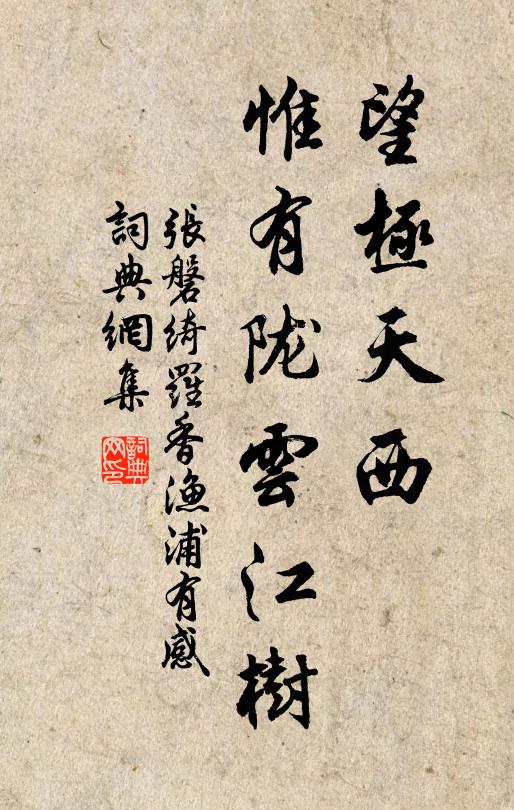 望極天西
惟有陇雲江樹
張磐綺羅香漁浦有感
詞典網集
詞典
网印